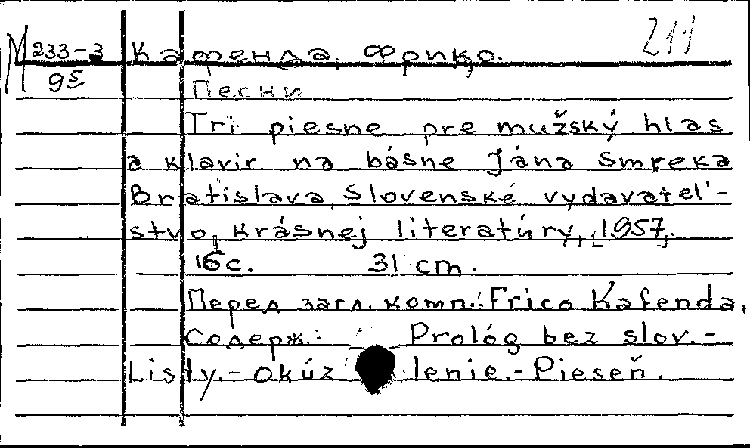 М 233-3 Кафенда, Фрицо. 211
95
Песни
Tri piesne pre mužský hlas
a klavír na básne Jána Smreka
Bratislava, Slovenské vydavatel'-
stvo, krásnej literatúry, 1957,
16c. 31 cm.
Перед загл. комп.: Frico Kafenda.
Содерж: Prológ bez slov.-
Listy.- okúz lenie.- Pieseň.